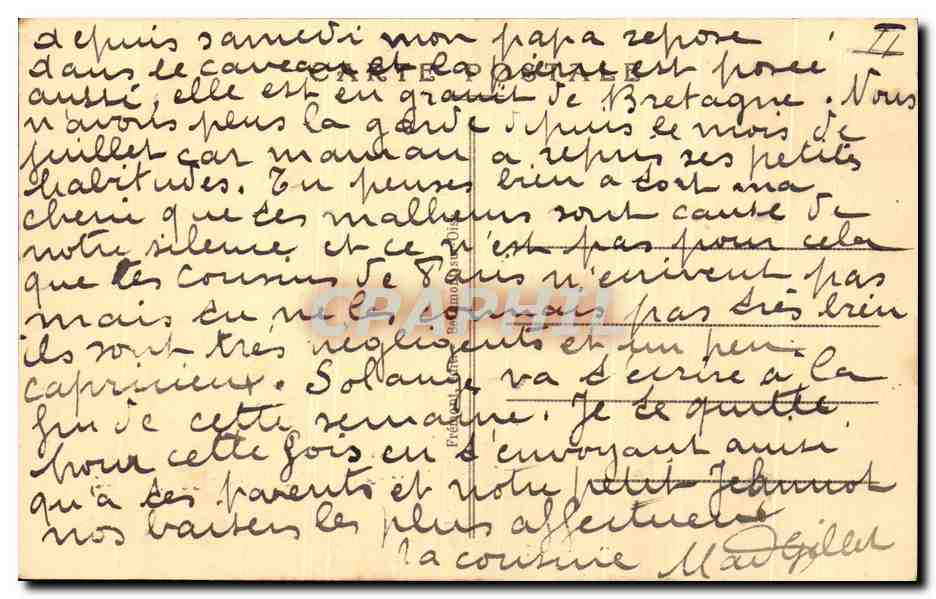 II
depuis samedi mon papa repose
dans le caveau et la pierre est posée
CARTE POSTALE
aussi, elle est en granit de Bretagne. Nous
n'avons plus la garde depuis le mois de
juillet car maman a repris ses petites
habitudes. Tu penses bien a tort ma
cherie que ces malheurs sont cause de
notre silence et ce n'est pas pour cela
que les cousins de Paris n'ecrivent pas
mais tu ne les connais pas très bien
ils sont très negligents et un peu
capricieux. Solange va t'ecrire à la
fin de cette semaine. Je te quitte
pour cette fois en t'envoyant ainsi
qu'à tes parents et notre petit Jeannot
nos baisers les plus affectueux
la cousine Mad Gillet
Frémont, Beaumont-sur-Oise
CPAPHIL